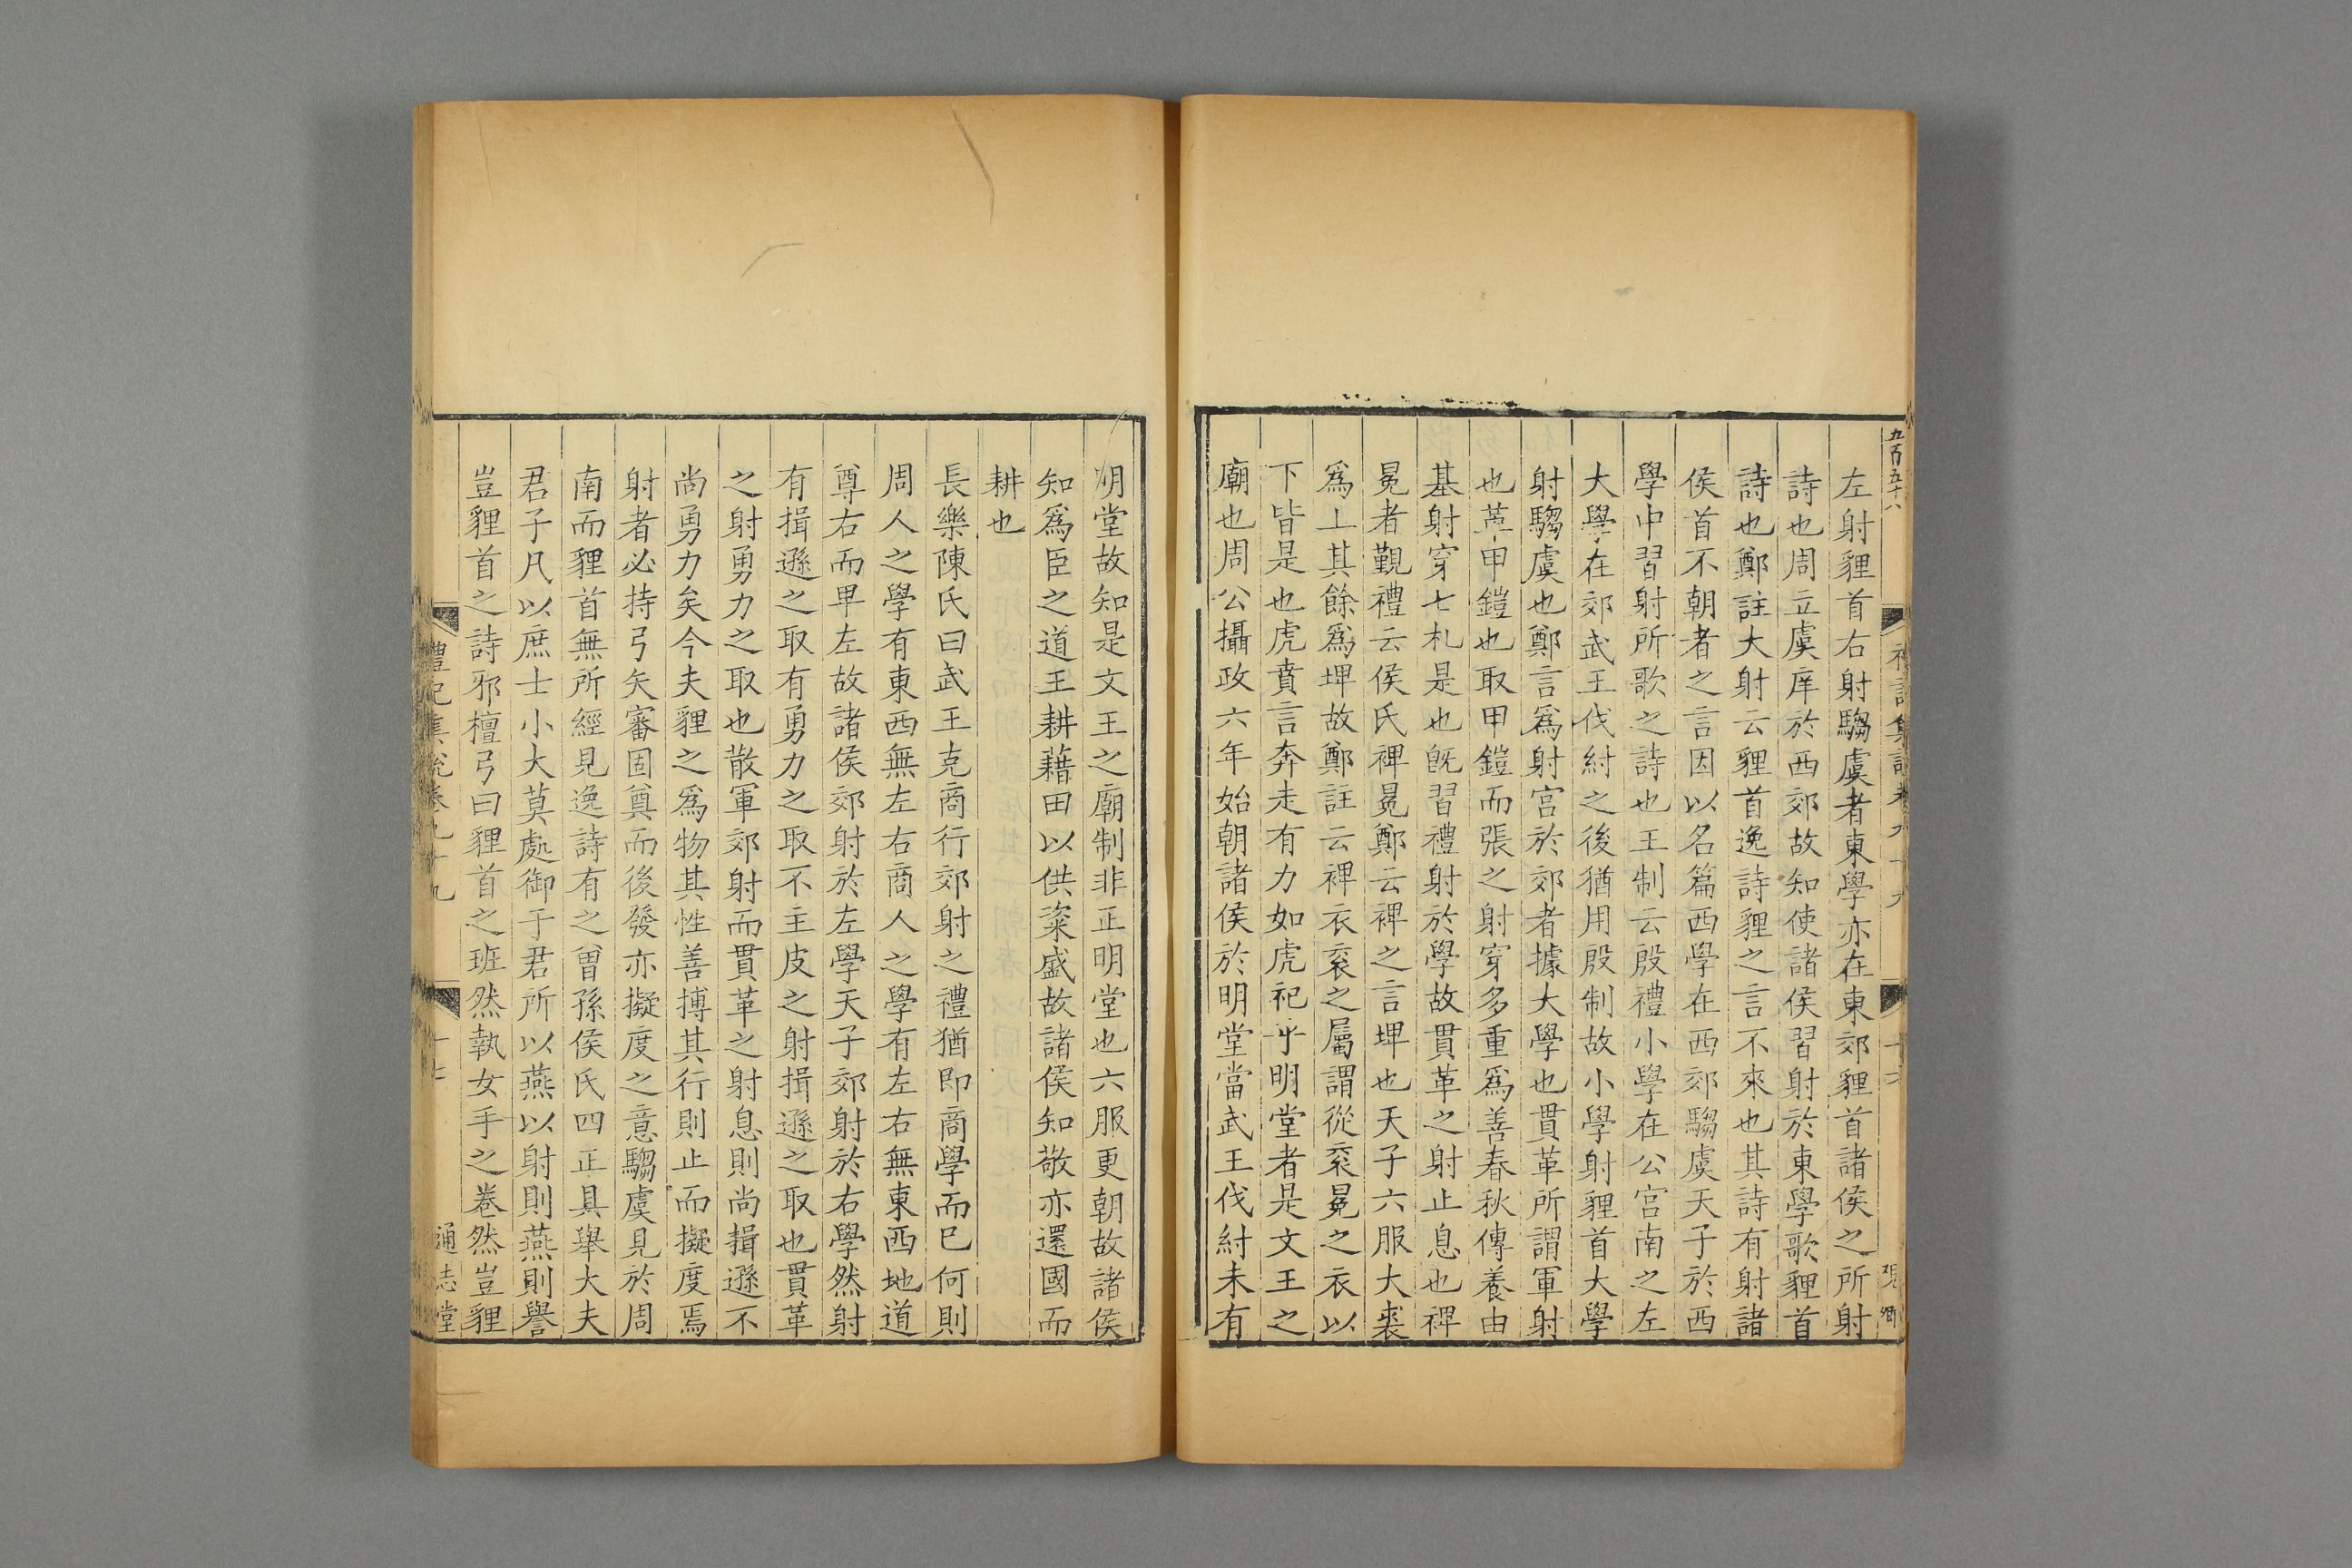 五百五十八
左射貍首右射騶虞者東學亦在東郊貍首諸侯之所射
詩也周立虞庠於西郊故知使諸侯習射於東學歌貍首
詩也鄭註大射云貍首逸詩貍之言不來也其詩有射諸
侯首不朝者之言因以名篇西學在西郊騶虞天子於西
學中習射所歌之詩也王制云殷禮小學在公宮南之左
大學在郊武王伐紂之後猶用殷制故小學射貍首大學
射騶虞也鄭言爲射宮於郊者據大學也貫革所謂軍射
也革甲鎧也取甲鎧而張之射穿多重爲善春秋傳養由
基射穿七札是也旣習禮射於學故貫革之射止息也裨
冕者覲禮云侯氏裨冕鄭云裨之言埤也天子六服大裘
爲上其餘爲埤故鄭註云裨衣衮之屬謂從衮冕之衣以
下皆是也虎賁言奔走有力如虎祀乎明堂者是文王之
廟也周公攝政六年始朝諸侯於明堂當武王伐紂未有
明堂故知是文王之廟制非正明堂也六服更朝故諸侯
知爲臣之道王耕藉田以供粢盛故諸侯知敬亦還國而
耕也
長樂陳氏曰武王克商行郊射之禮猶即商學而已何則
周人之學有東西無左右商人之學有左右無東西地道
尊右而卑左故諸侯郊射於左學天子郊射於右學然射
有揖遜之取有勇力之取不主皮之射揖遜之取也貫革
之射勇力之取也散軍郊射而貫革之射息則尚揖遜不
尚勇力矣今夫貍之爲物其性善搏其行則止而擬度焉
射者必持弓矢審固奠而後發亦擬度之意騶虞見於周
南而貍首無所經見逸詩有之曾孫侯氏四正具舉大夫
君子凡以庶士小大莫處御于君所以燕以射則燕則譽
豈貍首之詩邪檀弓曰貍首之班然執女手之卷然豈貍
禮記集說卷九十九
十七
通志堂